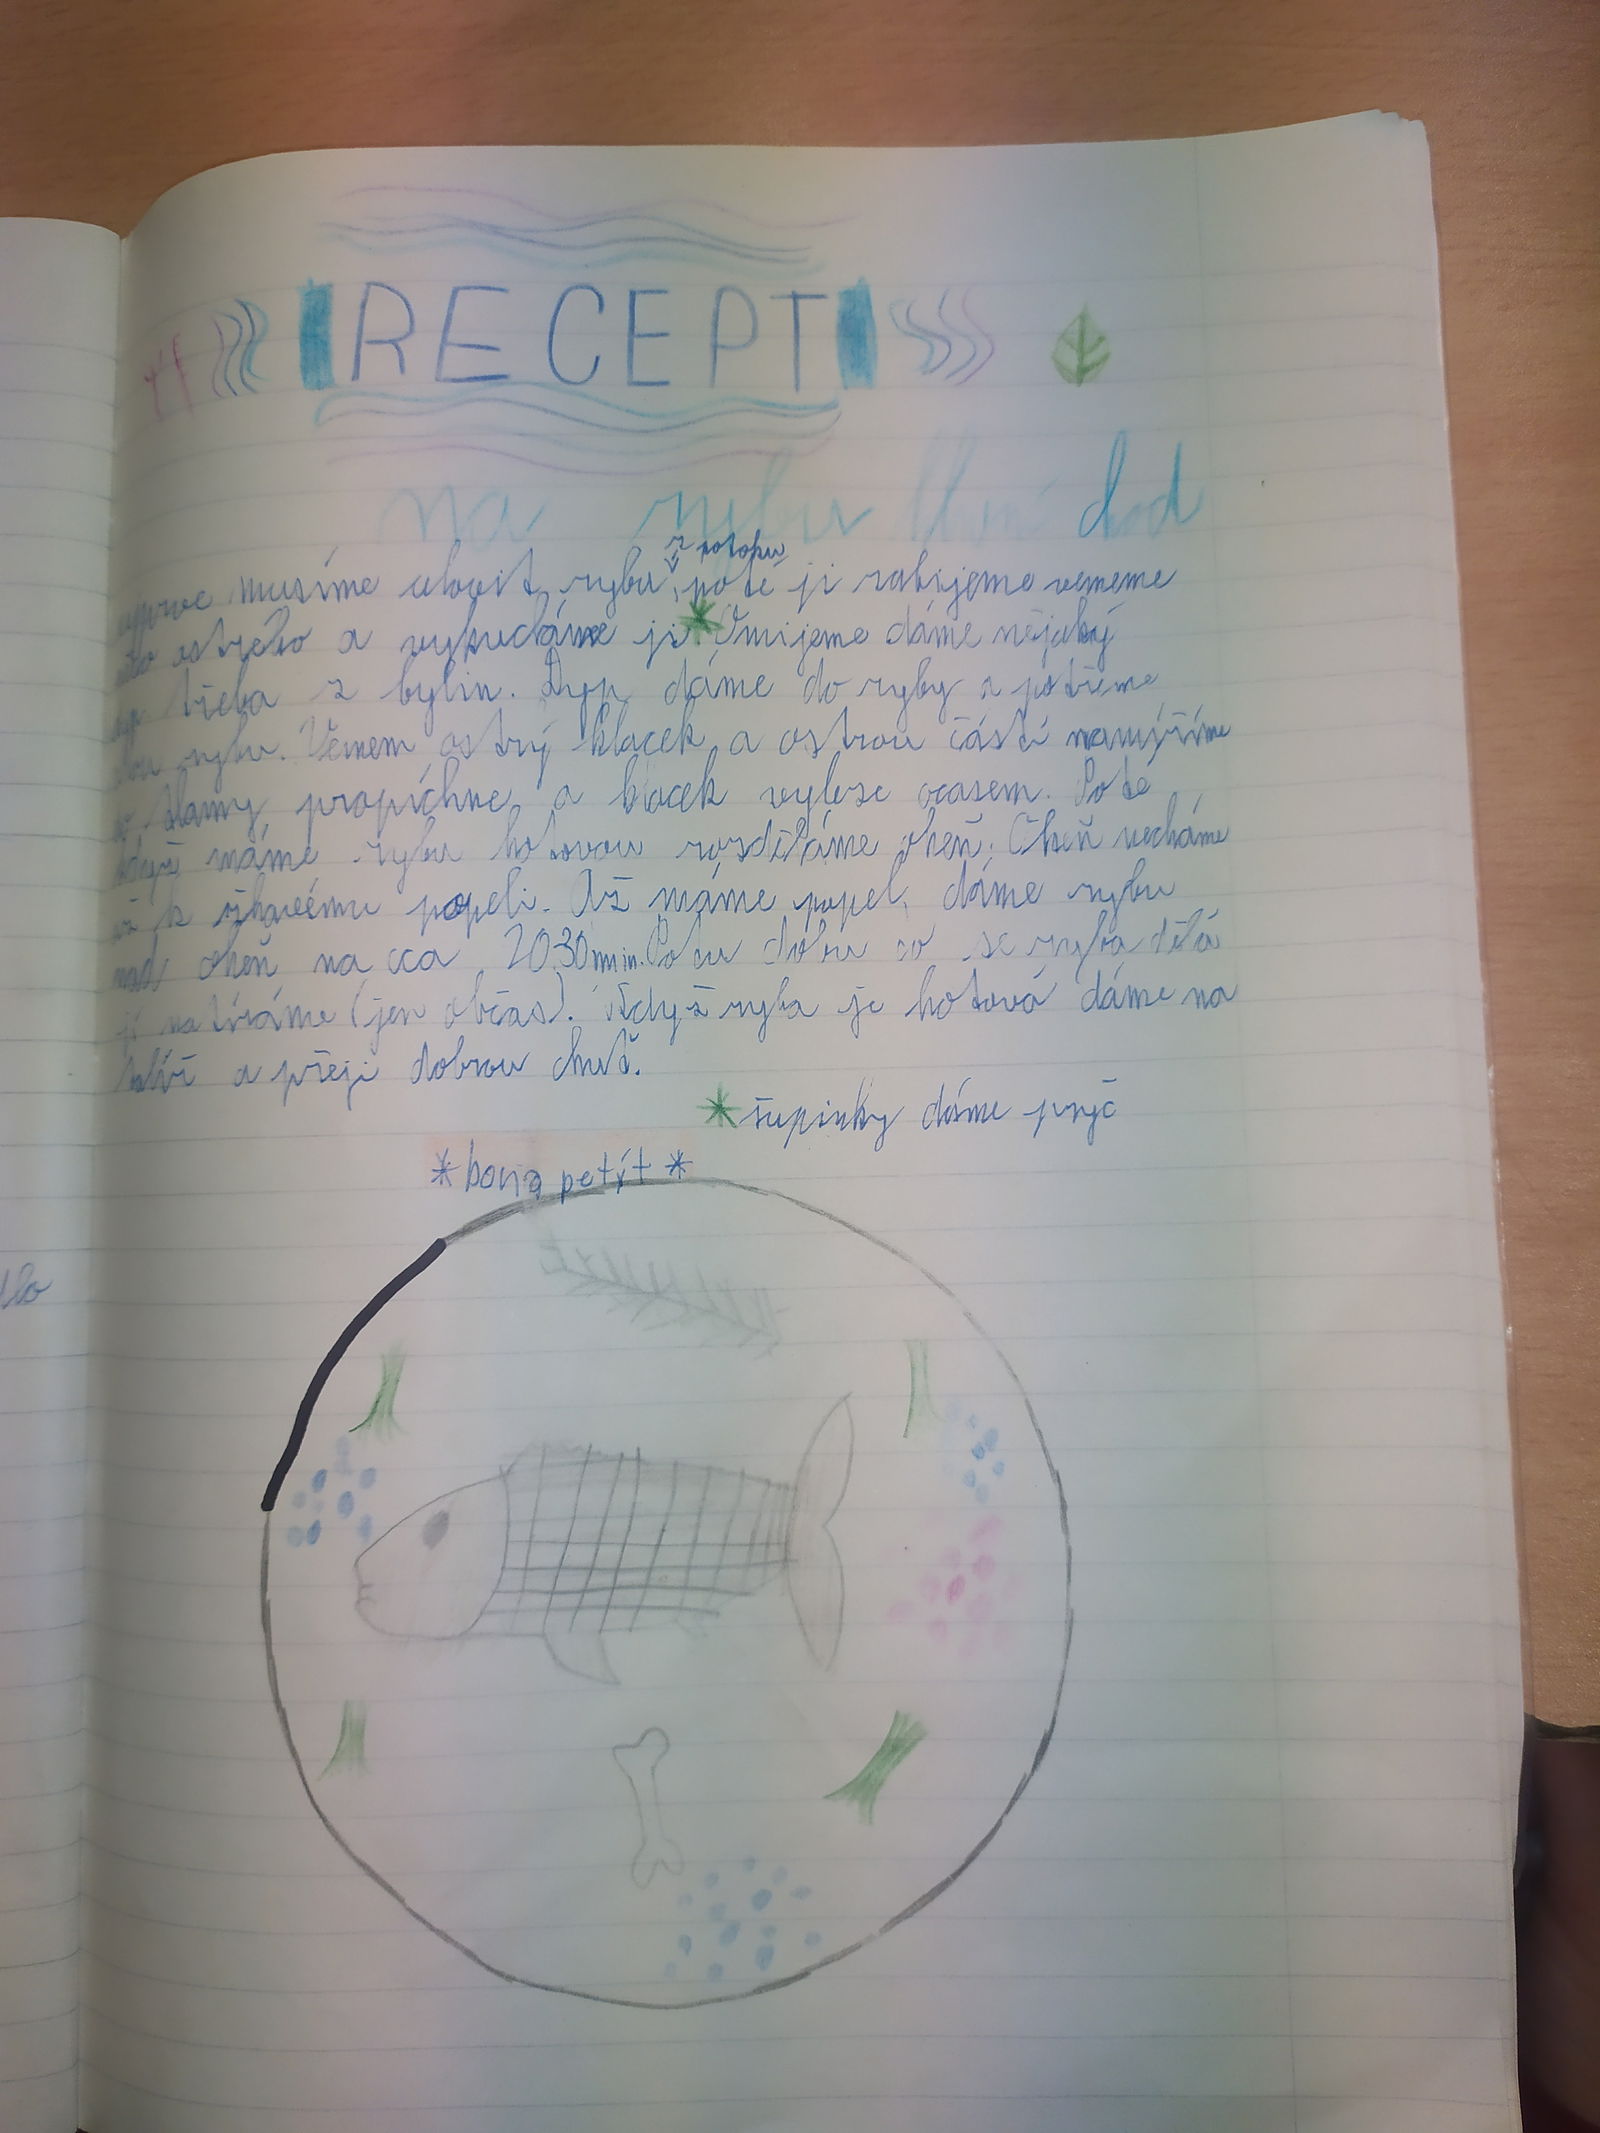 RECEPT
na rybu hlavní chod
z potoka
nejprve musíme ulovit rybu, poté ji zabijeme vememe
něco ostrého a vykucháme ji * Umijeme dáme nějaký
dyp třeba z bylin. Dyp dáme do ryby a potřeme
celou rybu. Vemem ostrý klacek a ostrou částí namíříme
do tlamy propíchne a klacek vyleze ocasem. Poté
když máme rybu hotovou rozděláme oheň, Oheň necháme
až k žhavému popeli. Až máme popel, dáme rybu
nad oheň na cca 2030min. Po tu dobu co se ryba dělá
jí natíráme (jen občas). Když ryba je hotová dáme na
talíř a přeji dobrou chuť.
* šupinky dáme pryč
* bona petít *
dlo